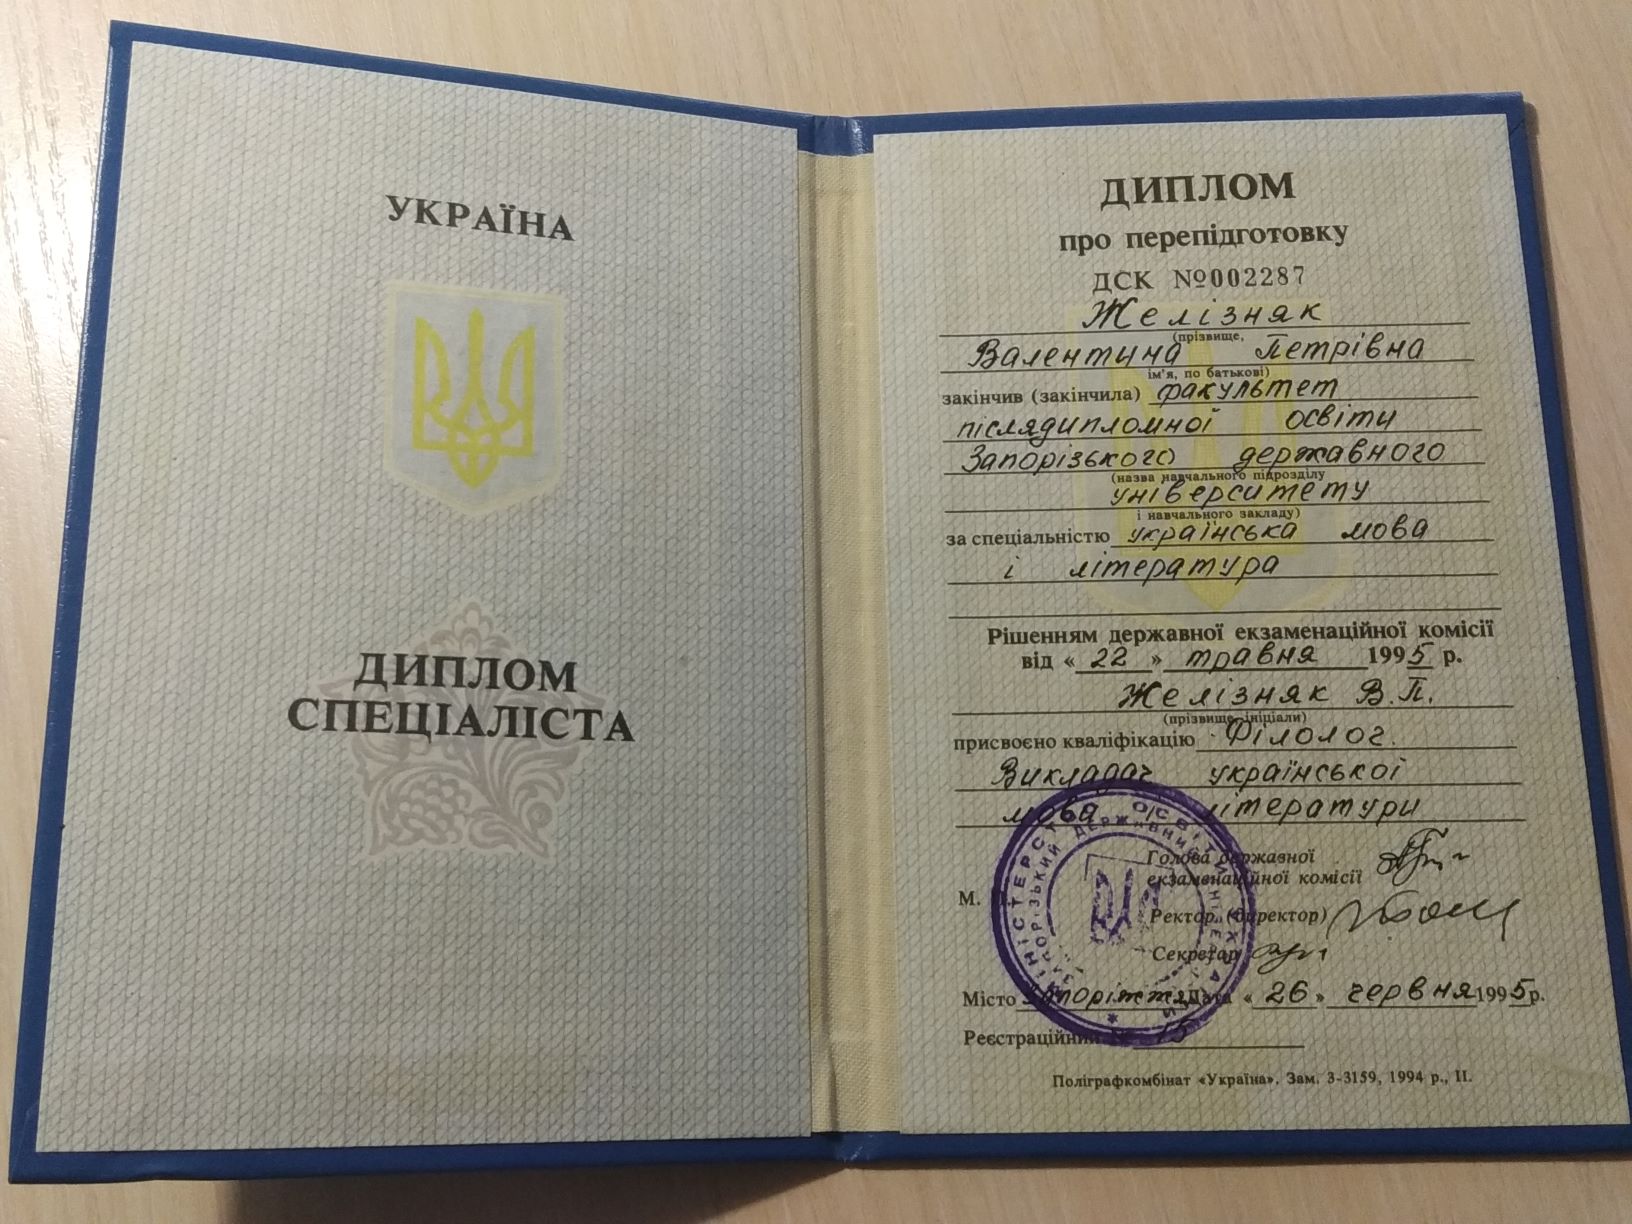 УКРАЇНА
ДИПЛОМ
СПЕЦІАЛІСТА
ДИПЛОМ
про перепідготовку
ДСК №002287
Желізняк
(прізвище,
Валентина Петрівна
ім'я, по батькові)
закінчив (закінчила) факультет
післядипломної освіти
Запорізького державного
(назва навчального підрозділу
університету
і навчального закладу)
за спеціальністю українська мова
і література
Рішенням державної екзаменаційної комісії
від « 22 » травня 1995 р.
Желізняк В.П.
(прізвище, ініціали)
присвоєно кваліфікацію Філолог.
Викладач української
мова і літератури
Голова державної
екзаменаційної комісії
М.
Ректор (директор)
Секретар
Місто Запоріжжя Дата « 26 » червня 1995 р.
Реєстраційний № 15
Поліграфкомбінат «Україна». Зам. 3-3159, 1994 р., II.
МІНІСТЕРСТВО ОСВІТИ УКРАЇНИ
ЗАПОРІЗЬКИЙ ДЕРЖАВНИЙ